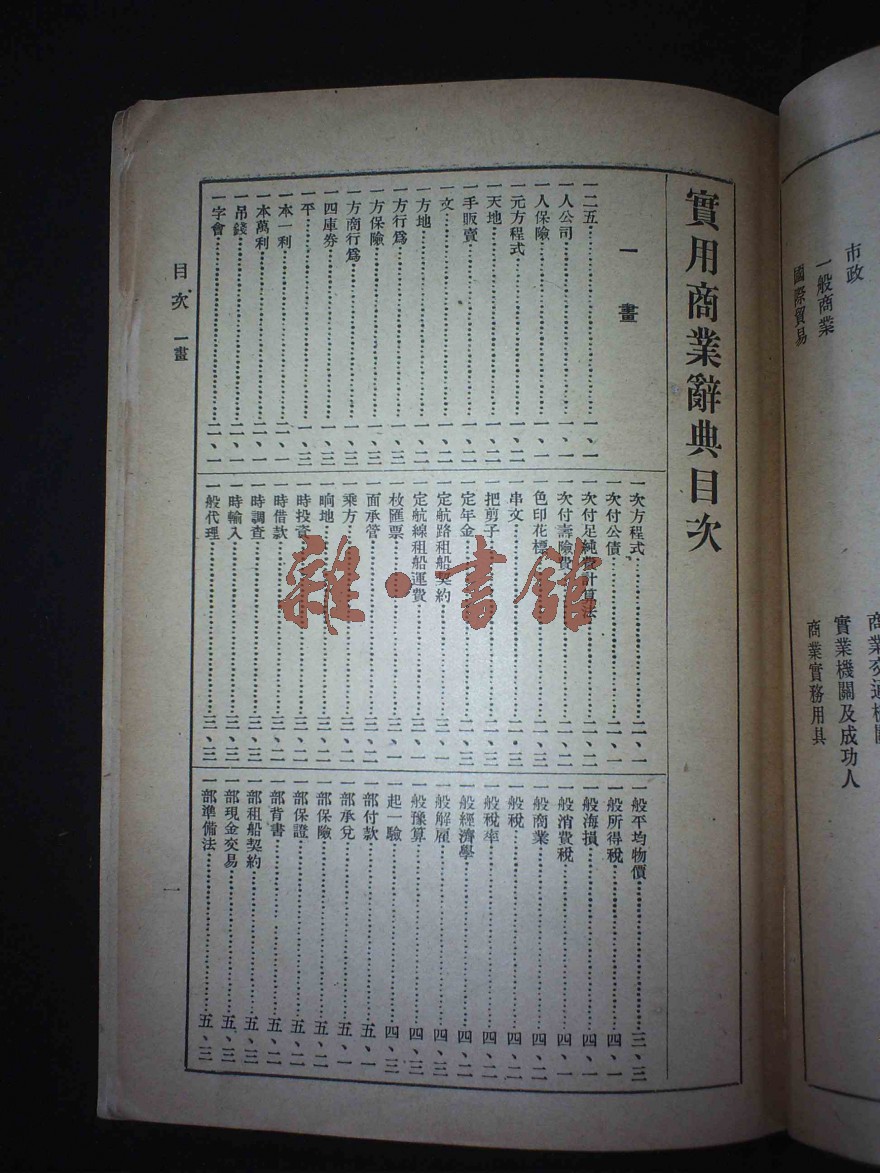 實用商業辭典目次
一畫
一二五……一、一
一人公司……一、一
一人保險……一、一
一元方程式……一、二
一天地……一、二
一手販賣……一、二
一文……一、二
一方地……一、二
一方行爲……一、三
一方保險……一、三
一方商行爲……一、三
一四庫券……一、三
一平……一、三
一本一利……二、一
一本萬利……二、一
一吊錢……二、一
一字會……二、一
一次方程式……二、一
一次付公債……二、一
一次付足純費計算法……二、二
一次付壽險費……二、二
一色印花標……二、三
一串文……二、三
一把剪子……二、三
一定年金……二、三
一定航路租船契約……三、一
一定航線租船運費……三、一
一枚匯票……三、一
一面承管……三、二
一乘方……三、二
一晌地……三、二
一時投資……三、二
一時借款……三、二
一時調查……三、三
一時輸入……三、三
一般代理……三、三
一般平均物價……三、三
一般所得稅……四、一
一般海損……四、一
一般消費稅……四、一
一般商業……四、二
一般稅……四、二
一般稅率……四、二
一般經濟學……四、二
一般解雇……四、三
一般豫算……四、三
一起一驗……四、三
一部付款……五、一
一部承兌……五、一
一部保險……五、二
一部保證……五、二
一部背書……五、二
一部租船契約……五、三
一部現金交易……五、三
一部準備法……五、三
目次 一畫
一
市政
一般商業
國際貿易
實業機關及成功人
商業實務用具
雜·書館